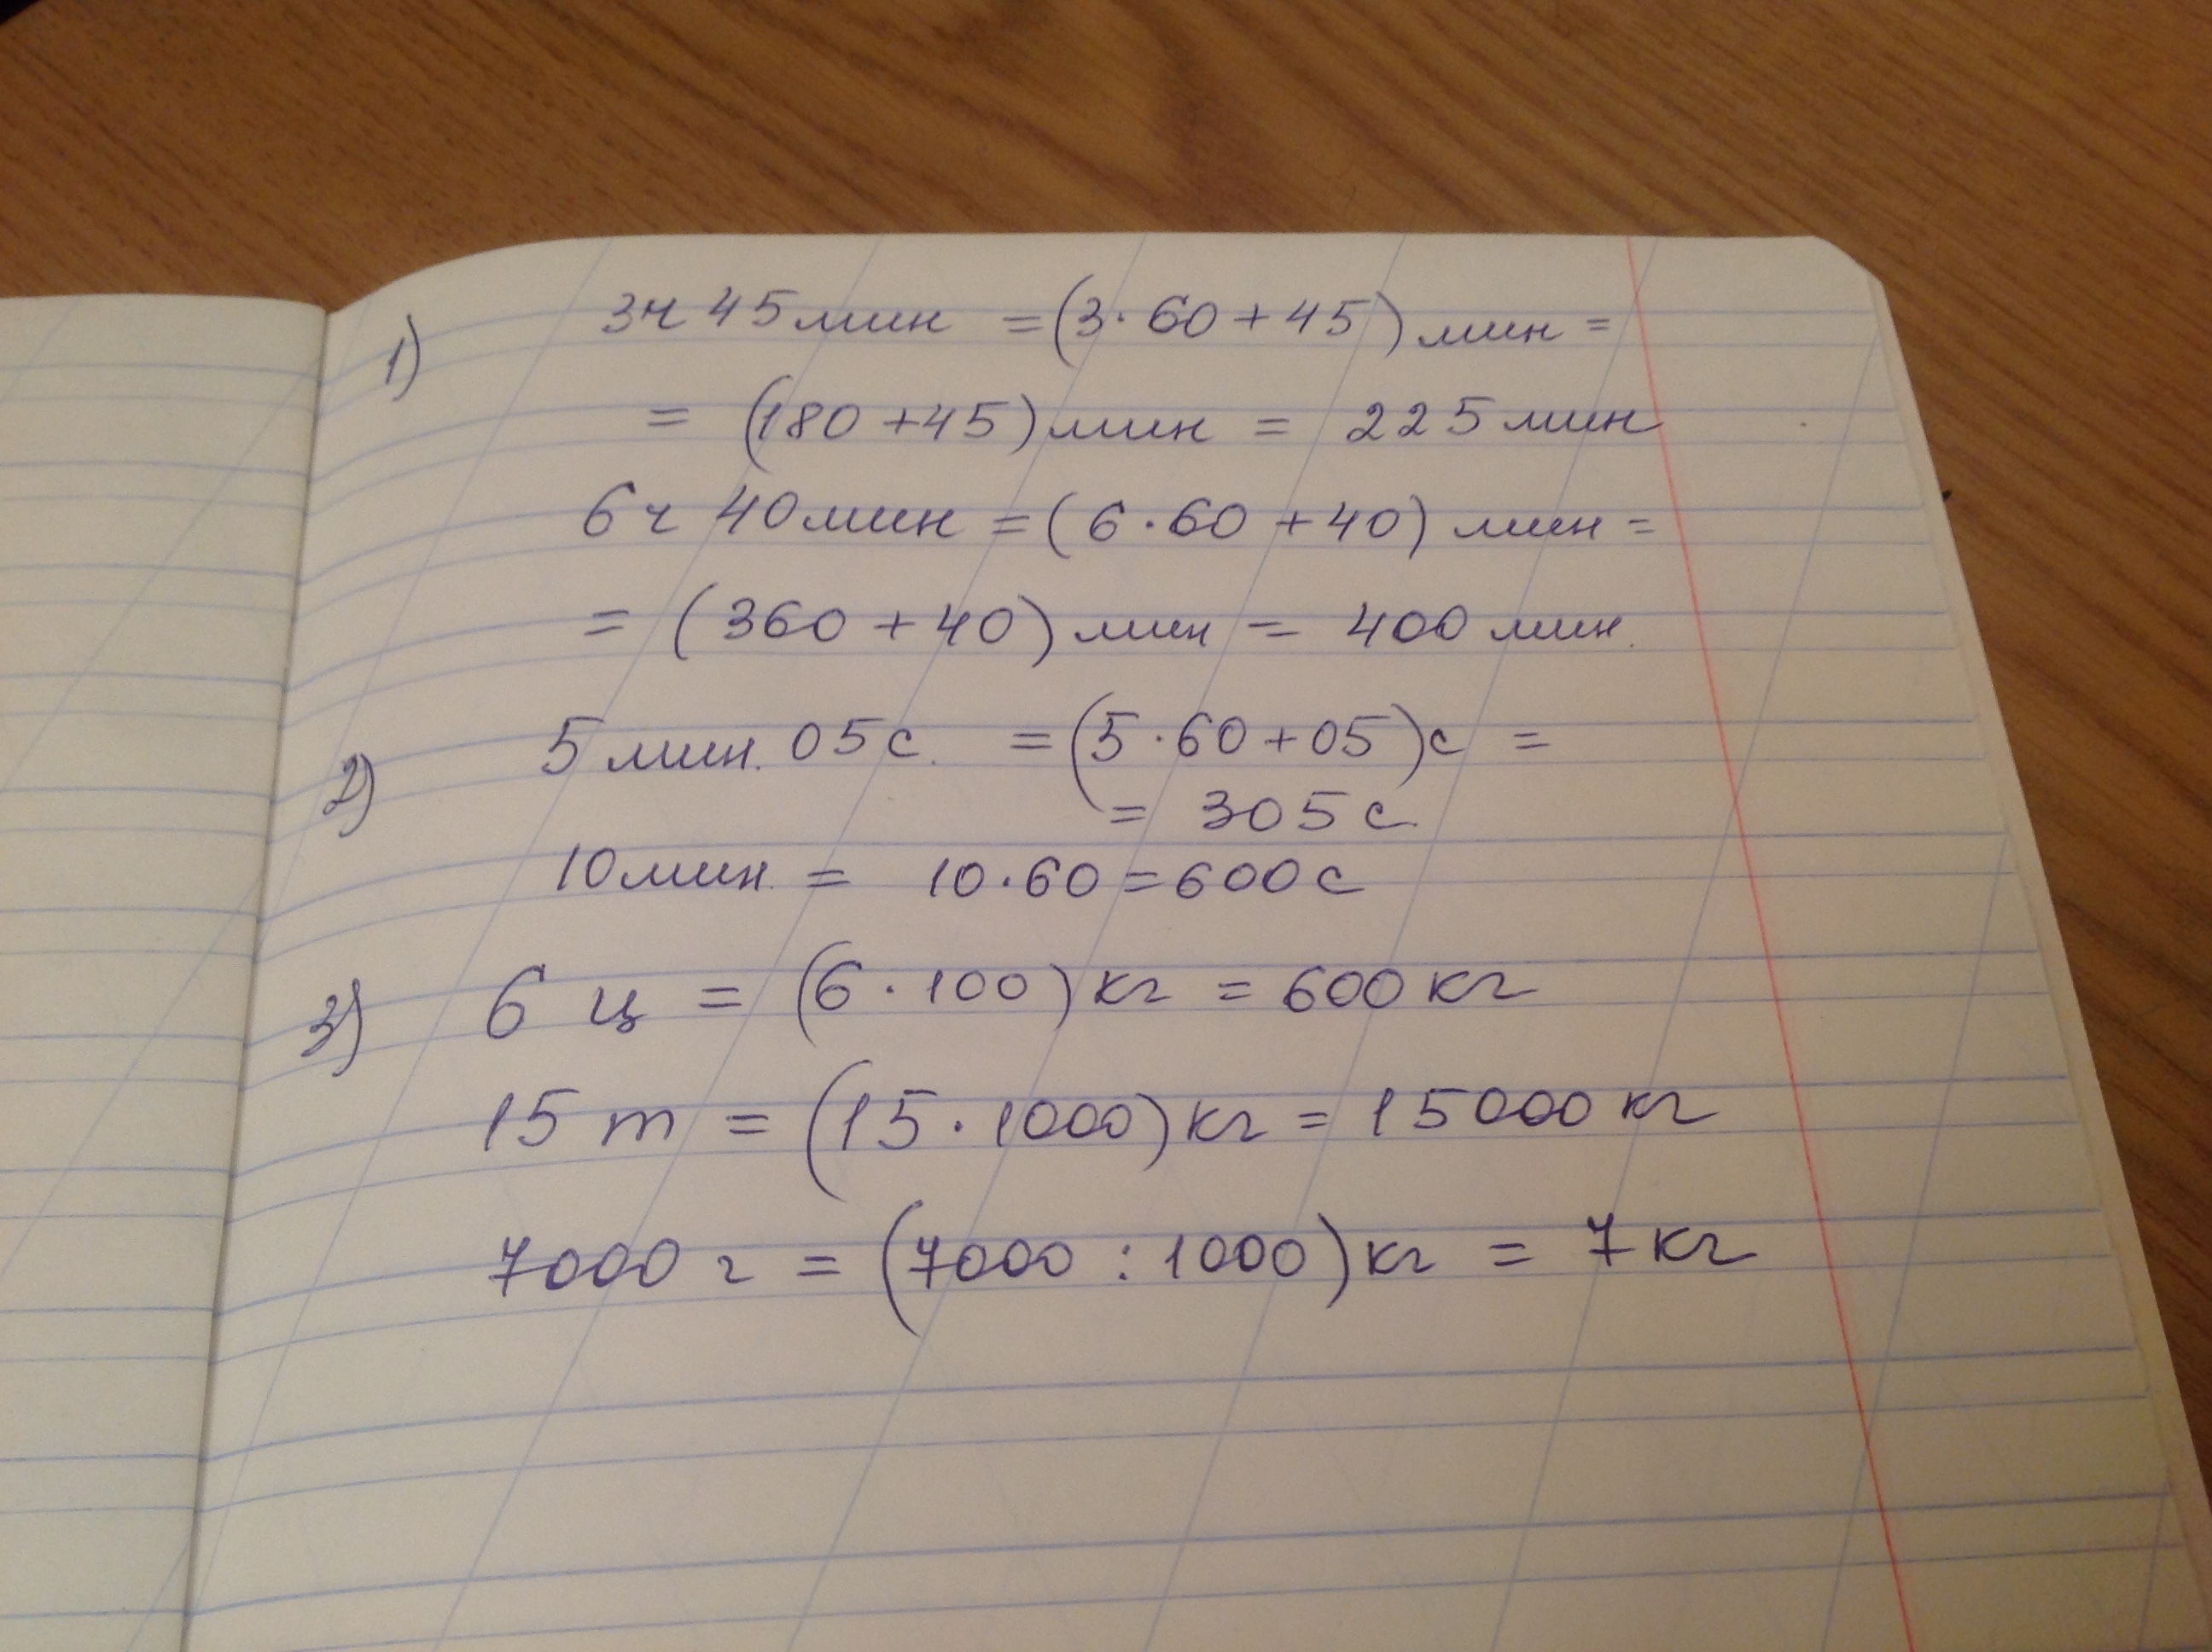 1) 3ч 45 мин = (3 · 60 + 45) мин =
= (180 + 45) мин = 225 мин
6 ч 40 мин = (6 · 60 + 40) мин =
= (360 + 40) мин = 400 мин.
2) 5 мин. 05 с. = (5 · 60 + 05) с =
= 305 с.
10 мин. = 10 · 60 = 600 с
3) 6 ц = (6 · 100) кг = 600 кг
15 т = (15 · 1000) кг = 15000 кг
7000 г = (7000 : 1000) кг = 7 кг